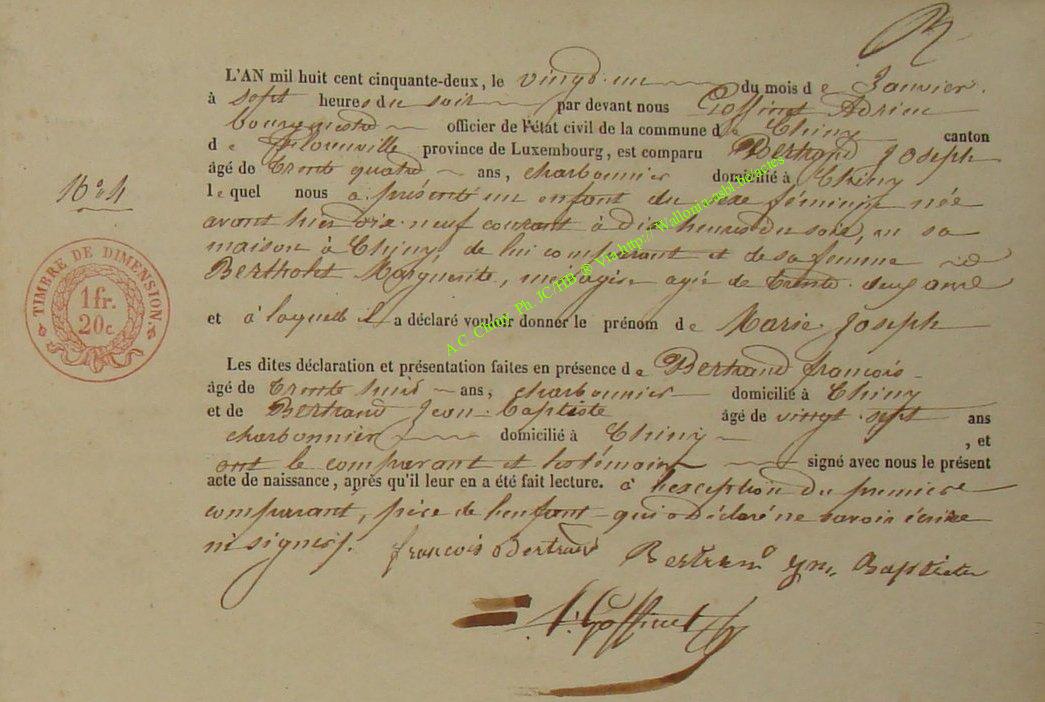 L'AN mil huit cent cinquante-deux, le vingt-un du mois de Janvier.
à sept heures du soir par devant nous Goffinet Adrien
bourgmestre officier de l'état civil de la commune de Chiny canton
de Florenville province de Luxembourg, est comparu Bertrand Joseph
âgé de trente quatre ans, charbonnier domicilié à Chiny
N° 4
lequel nous a présenté un enfant du sexe féminin née
avant hier dix-neuf courant à dix heures du soir, en sa
maison à Chiny, de lui comparant et de sa femme
Bertholet Marguerite, ménagère agée de trente-deux ans
et à laquelle il a déclaré vouloir donner le prénom de Marie Joseph
Les dites déclaration et présentation faites en présence de Bertrand françois
âgé de trente ans, charbonnier domicilié à Chiny
et de Bertrand Jean-Baptiste âgé de vingt-sept ans
charbonnier domicilié à Chiny , et
ont le comparant et les témoins signé avec nous le présent
acte de naissance, après qu'il leur en a été fait lecture. à l'exception du premier
comparant, père de l'enfant qui a déclaré ne savoir écrire
ni signer.
françois Bertrand Bertrand Jn. Baptiste
A. Goffinet
TIMBRE DE DIMENSION.
1 fr.
20 c.
A.C. Chiny, Ph. JC/HB ® Via http://Wallonia-asbl.be/actes